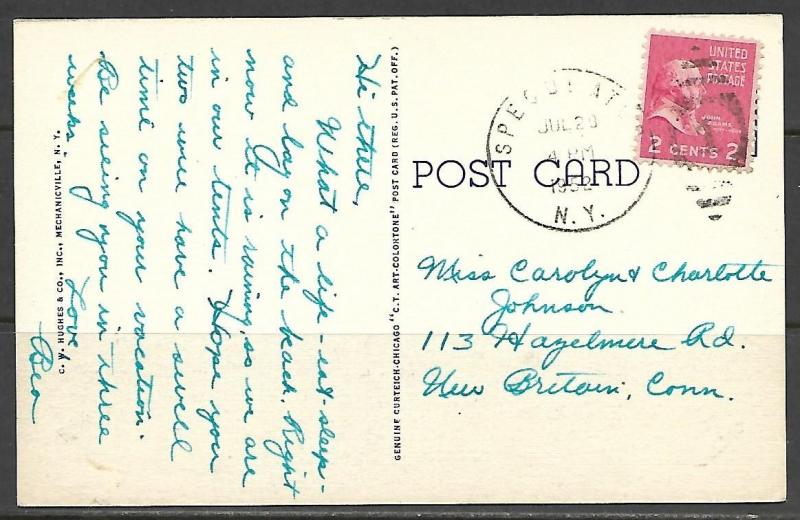 Hi there,
What a life - eat - sleep -
and lay on the beach. Right
now it is raining, so we are
in our tents. Hope you
two will have a swell
time on your vacation.
Be seeing you in three
weeks.
Love,
Bea
C. W. HUGHES & CO., INC., MECHANICVILLE, N. Y.
GENUINE CURTEICH-CHICAGO "C. T. ART-COLORTONE" POST CARD (REG. U. S. PAT. OFF.)
POST CARD
JUL 28
4 PM
1952
N. Y.
UNITED
STATES
POSTAGE
JOHN
ADAMS
2 CENTS 2
Miss Carolyn & Charlotte
Johnson
113 Hazelmere Rd.
New Britain, Conn.